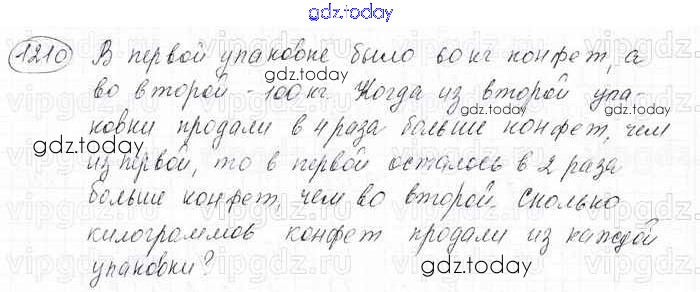 gdz.today
1210 В первой упаковке было 60 кг конфет, а
во второй - 100 кг. Когда из второй упа-
gdz.today
ковки продали в 4 раза больше конфет, чем
gdz.today
из первой, то в первой осталось в 2 раза
больше конфет, чем во второй. Сколько
килограммов конфет продали из каждой
упаковки?
gdz.today